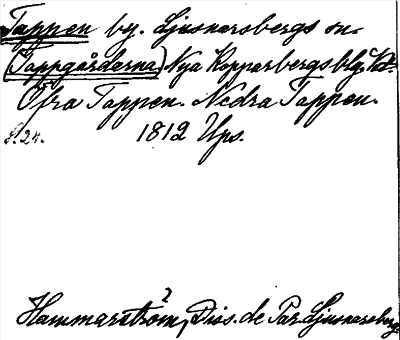 Tappen by. Ljusnarsbergs sn.
(Tappgårderna) Nya Kopparbergs blg.
Öfra Tappen. Nedra Tappen.
S. 24. 1812 Ups.
Hammarström, Diss. de Par. Ljusnarsberg